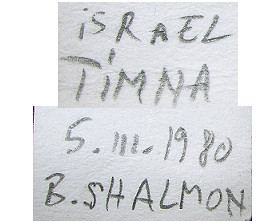 iSRAEL
TiMNA
5.III.1980
B.SHALMON